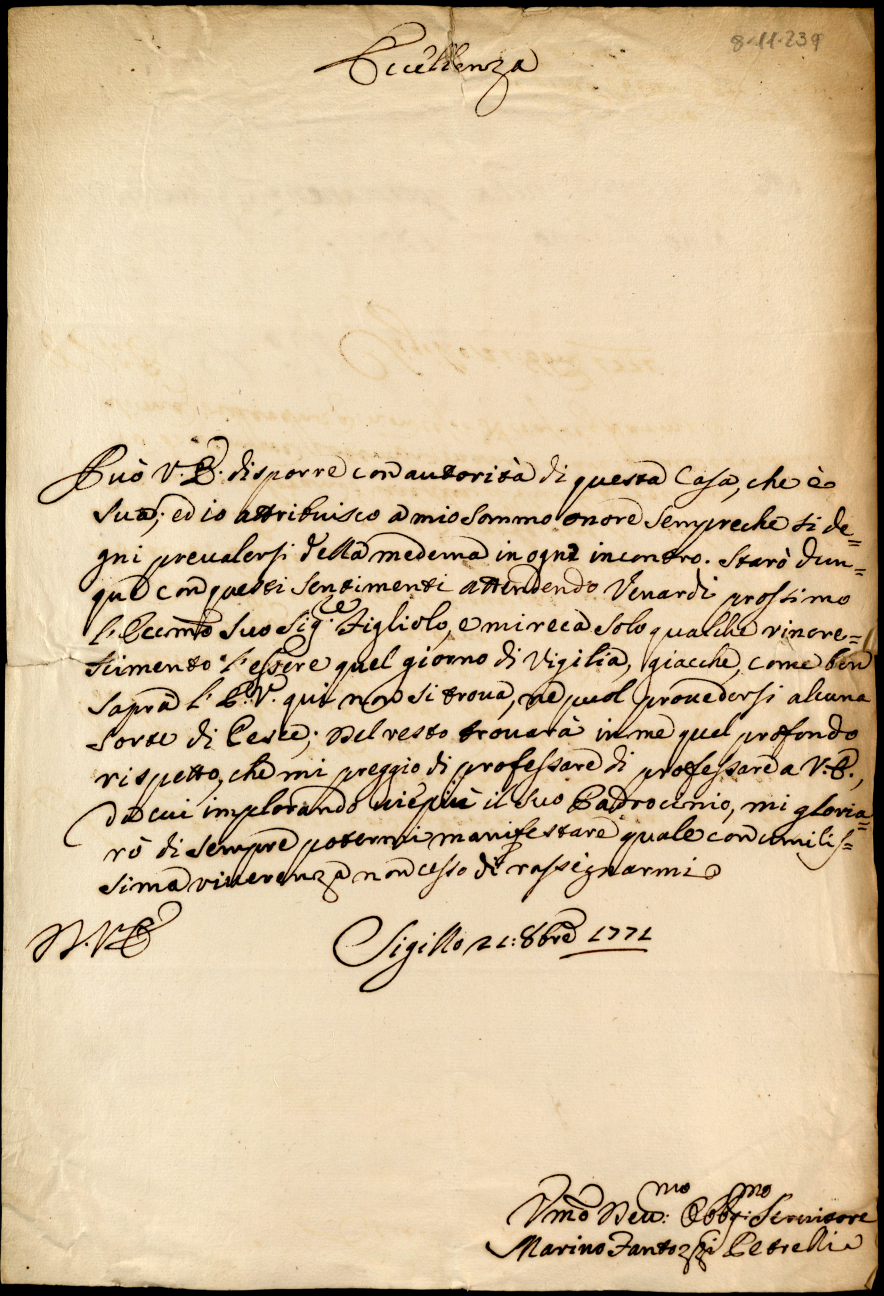 8-11-239
Eccellenza
Può V. E. disporre con autorità di questa Casa, che è
sua; ed io attribuisco a mio sommo onore sempreche si de=
gni prevalersi della medema in ogni incontro. Starò dun=
que con questi sentimenti attendendo Venardi prossimo
l'Eccmo Suo Sigr.e Figliolo, e mi reca solo qualche rincre=
scimento l'essere quel giorno di Vigilia, giacche, come ben
saprà l'E. V. qui non si trova, ne puol provedersi alcuna
sorte di Pesce; Del resto trovarà in me quel profondo
rispetto, che mi preggio di professare di professare a V. E.,
da cui implorando viépiù il suo Padrocinio, mi gloria=
rò di sempre potermi manifestare quale con umilis=
sima riverenza non cesso di rassegnarmi
D. V. E.
Sigillo 21: 8bre 1771
Vmo Dev:mo Obbg:mo Servitore
Marino Fantozzi Petrelli